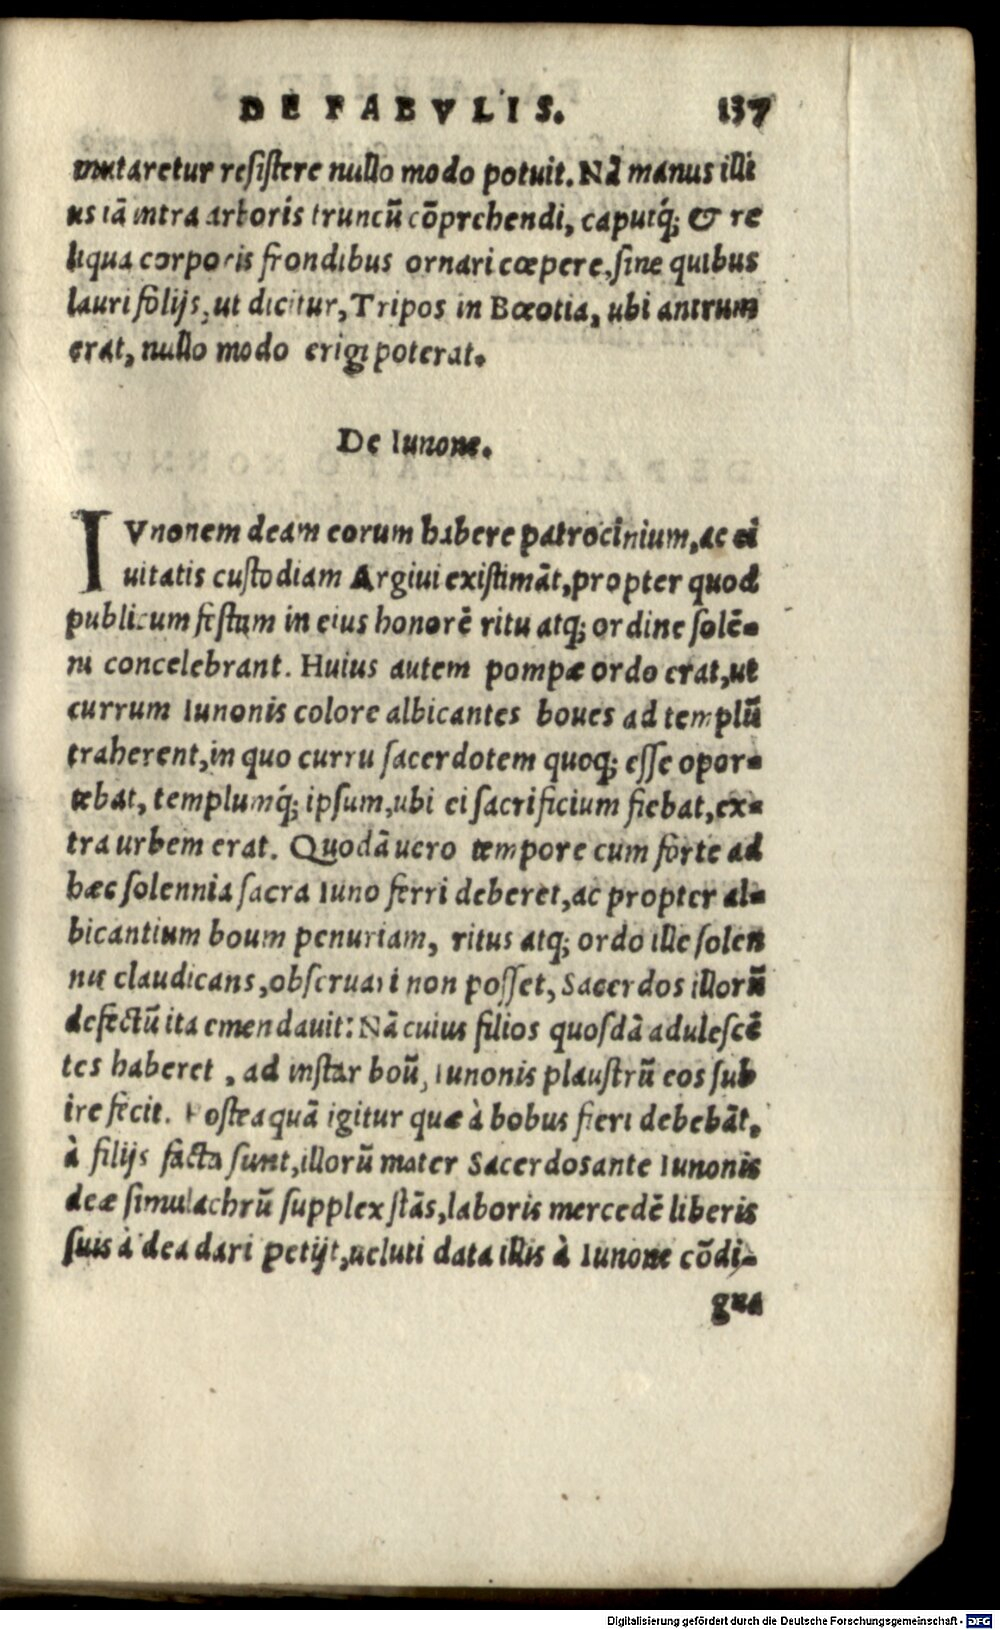 DE FABVLIS. 137
mutaretur resistere nullo modo potuit. Nã manus illi
us iã intra arboris truncũ cõprehendi, caputq́; & re
liqua corporis frondibus ornari cœpere, sine quibus
lauri folijs, ut dicitur, Tripos in Bœotia, ubi antrum
erat, nullo modo erigi poterat.
De Iunone.
IVnonem deam eorum habere patrocinium, ac ci
uitatis custodiam Argiui existimãt, propter quod
publicum festum in eius honorẽ ritu atq; ordine solẽ-
ni concelebrant. Huius autem pompæ ordo erat, ut
currum Iunonis colore albicantes boues ad templũ
traherent, in quo curru sacerdotem quoq; esse opor-
tebat, templumq́; ipsum, ubi ei sacrificium fiebat, ex-
tra urbem erat. Quodã uero tempore cum forte ad
hæc solennia sacra Iuno ferri deberet, ac propter al-
bicantium boum penuriam, ritus atq; ordo ille solen
nis claudicans, obseruari non posset, Sacerdos illorũ
defectũ ita emendauit: Nã cuius filios quosdã adulescẽ
tes haberet, ad instar boũ, Iunonis plaustrũ eos sub
ire fecit. Posteaquã igitur quæ à bobus fieri debebãt,
à filijs facta sunt, illorũ mater Sacerdos ante Iunonis
deæ simulachrũ supplex stãs, laboris mercedẽ liberis
suis à dea dari petijt, ueluti data illis à Iunone cõdi-
gna
Digitalisierung gefördert durch die Deutsche Forschungsgemeinschaft - DFG